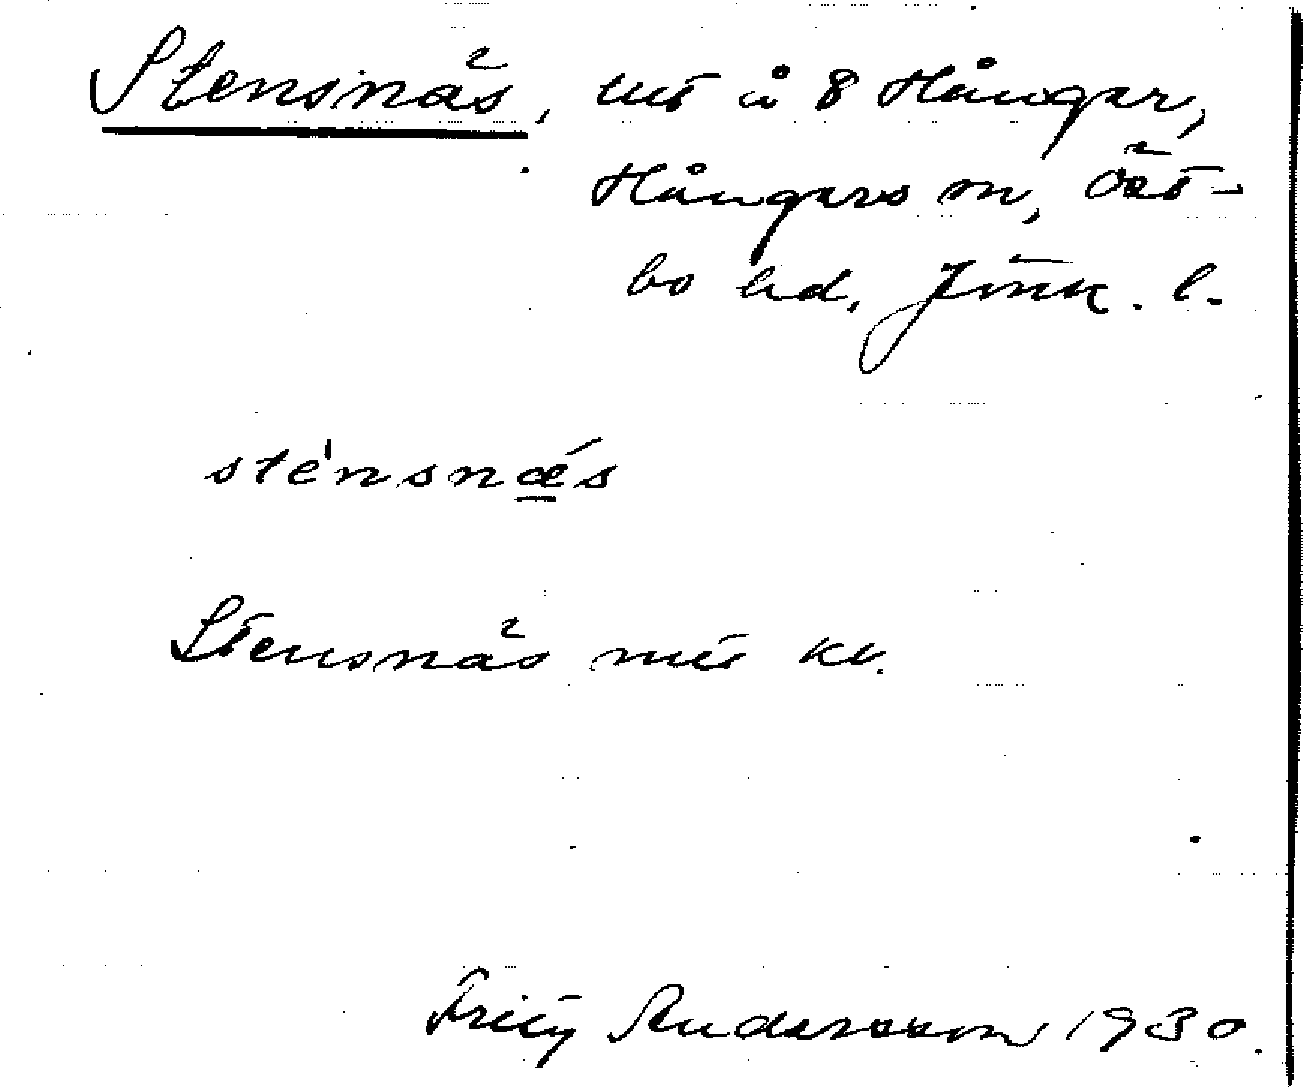 Stensnäs, å 8 Hånger,
Hångers sn, Öst-
bo hd, Jönk. l.
sté'nsnǽ̲s
Stensnäs
Fritz Andersson 1930.